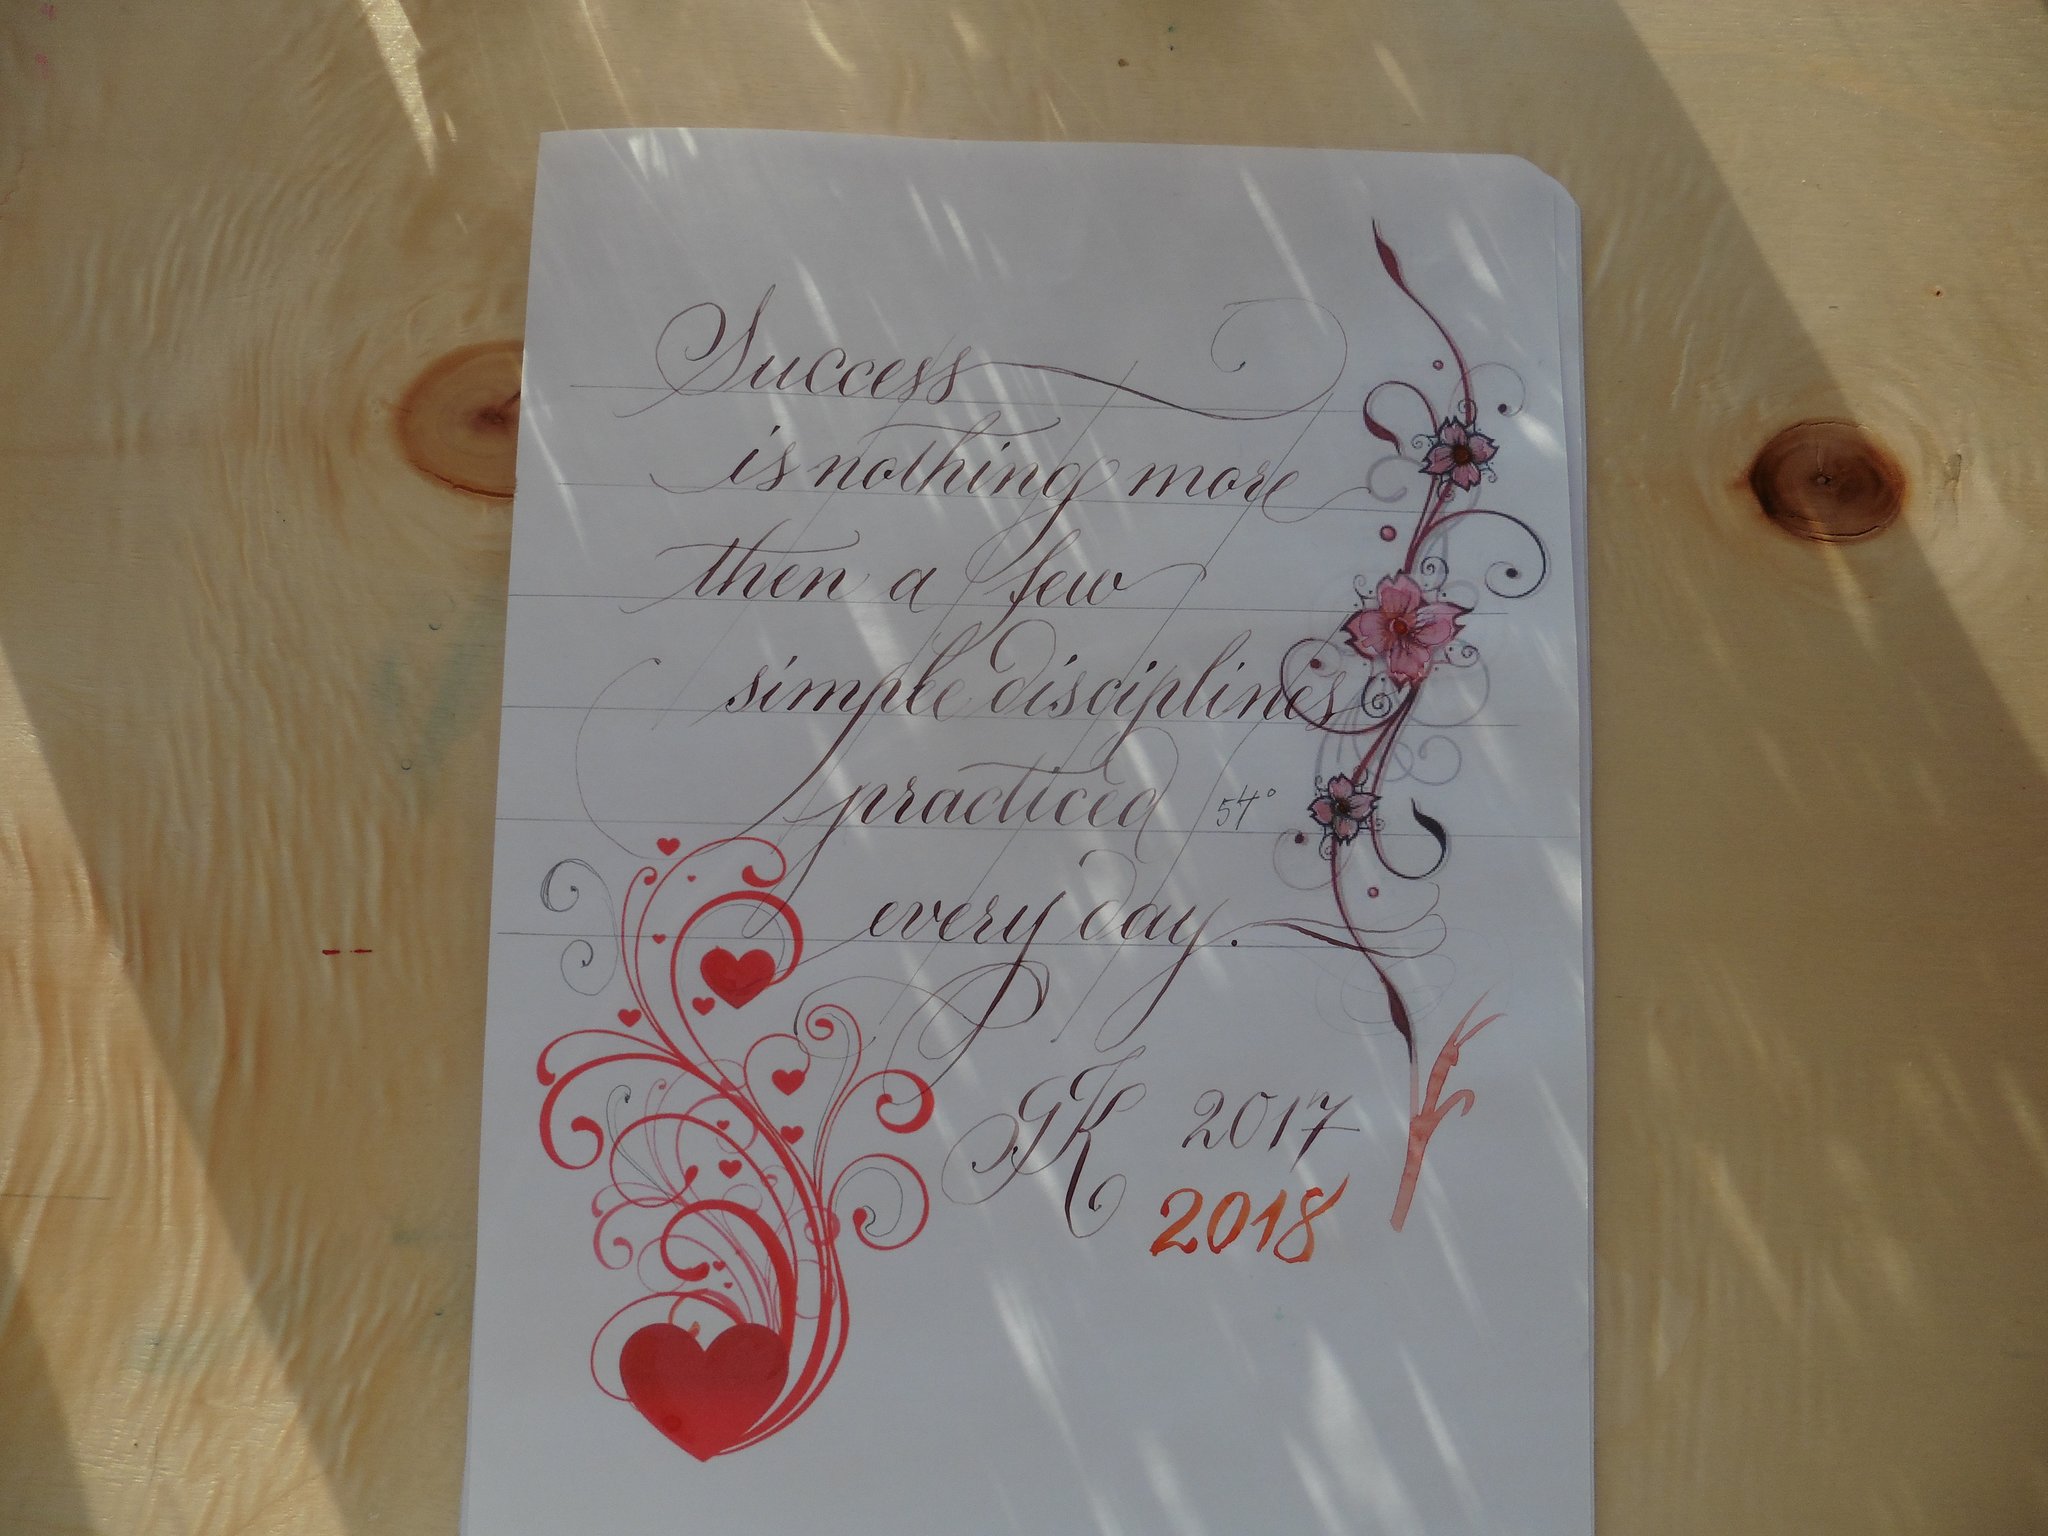 Success
is nothing more
then a few
simple disciplines
practiced 54°
every day.
GK 2017
2018